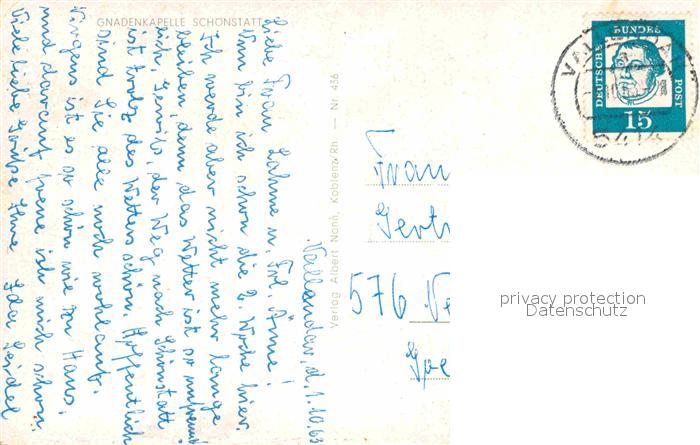 GNADENKAPELLE SCHÖNSTATT
Vallendar, d. 1.10.63
Liebe Frau Lahme u. Frl. Änne!
Nun bin ich schon die 2. Woche hier.
Ich werde aber nicht mehr lange
bleiben, denn das Wetter ist so unfreund-
lich. Gewiß, der Weg nach Schönstatt
ist trotz des Wetters schön. Hoffentlich
sind Sie alle noch wohlauf.
Nirgens ist es so schön wie zu Haus.
und darauf freue ich mich schon.
Viele liebe Grüße Ihre Ida Seidel
Verlag Albert Nonn, Koblenz/Rh. — Nr. 436
Frau
Gertr
576 Ne
Goe
DEUTSCHE BUNDES POST
15
VALLENDAR
5414
privacy protection
Datenschutz